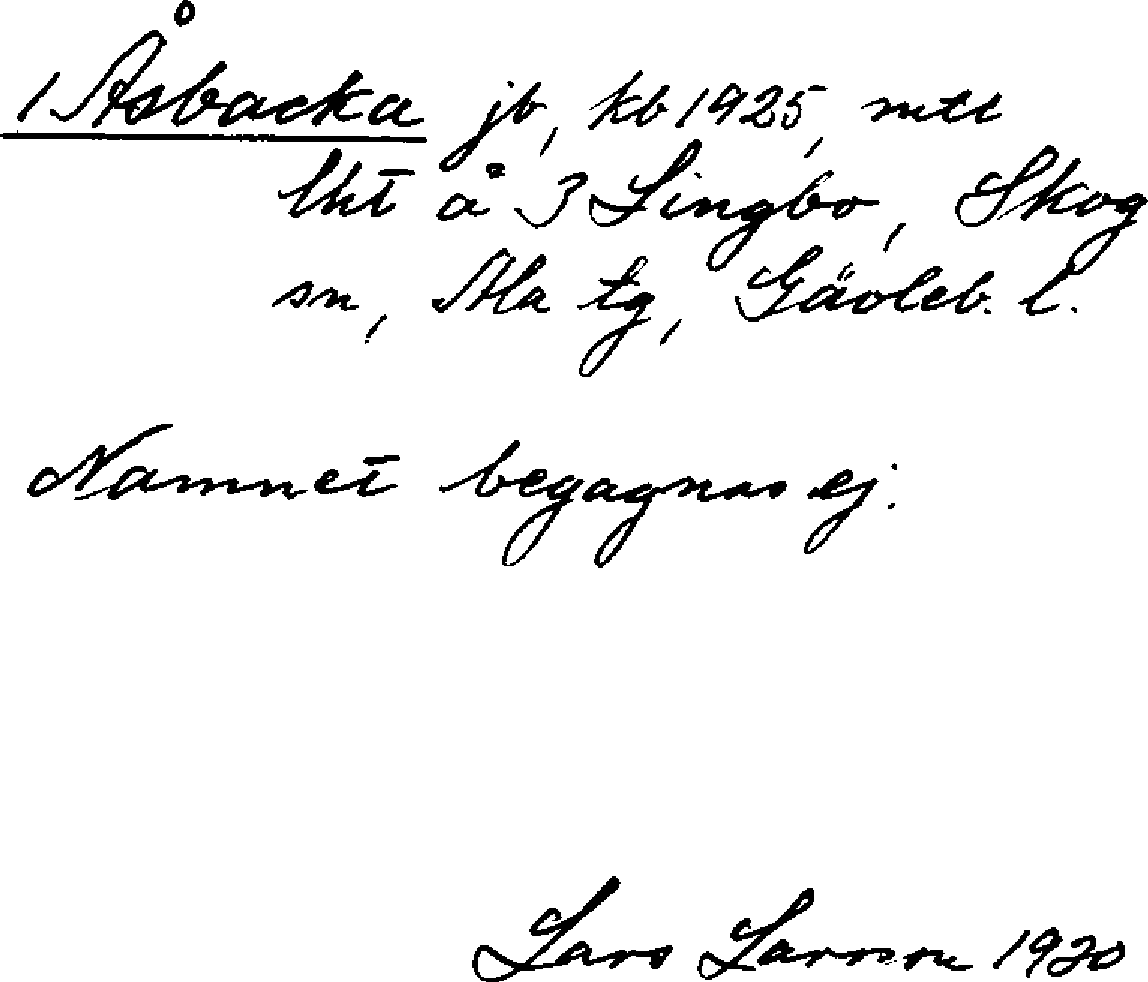 1 Åsbacka jb, kb 1925, mtl
lht å 3 Lingbo, Skog
sn, Ala tg, Gävleb. l.
Namnet begagnas ej.
Lars Larsson 1920